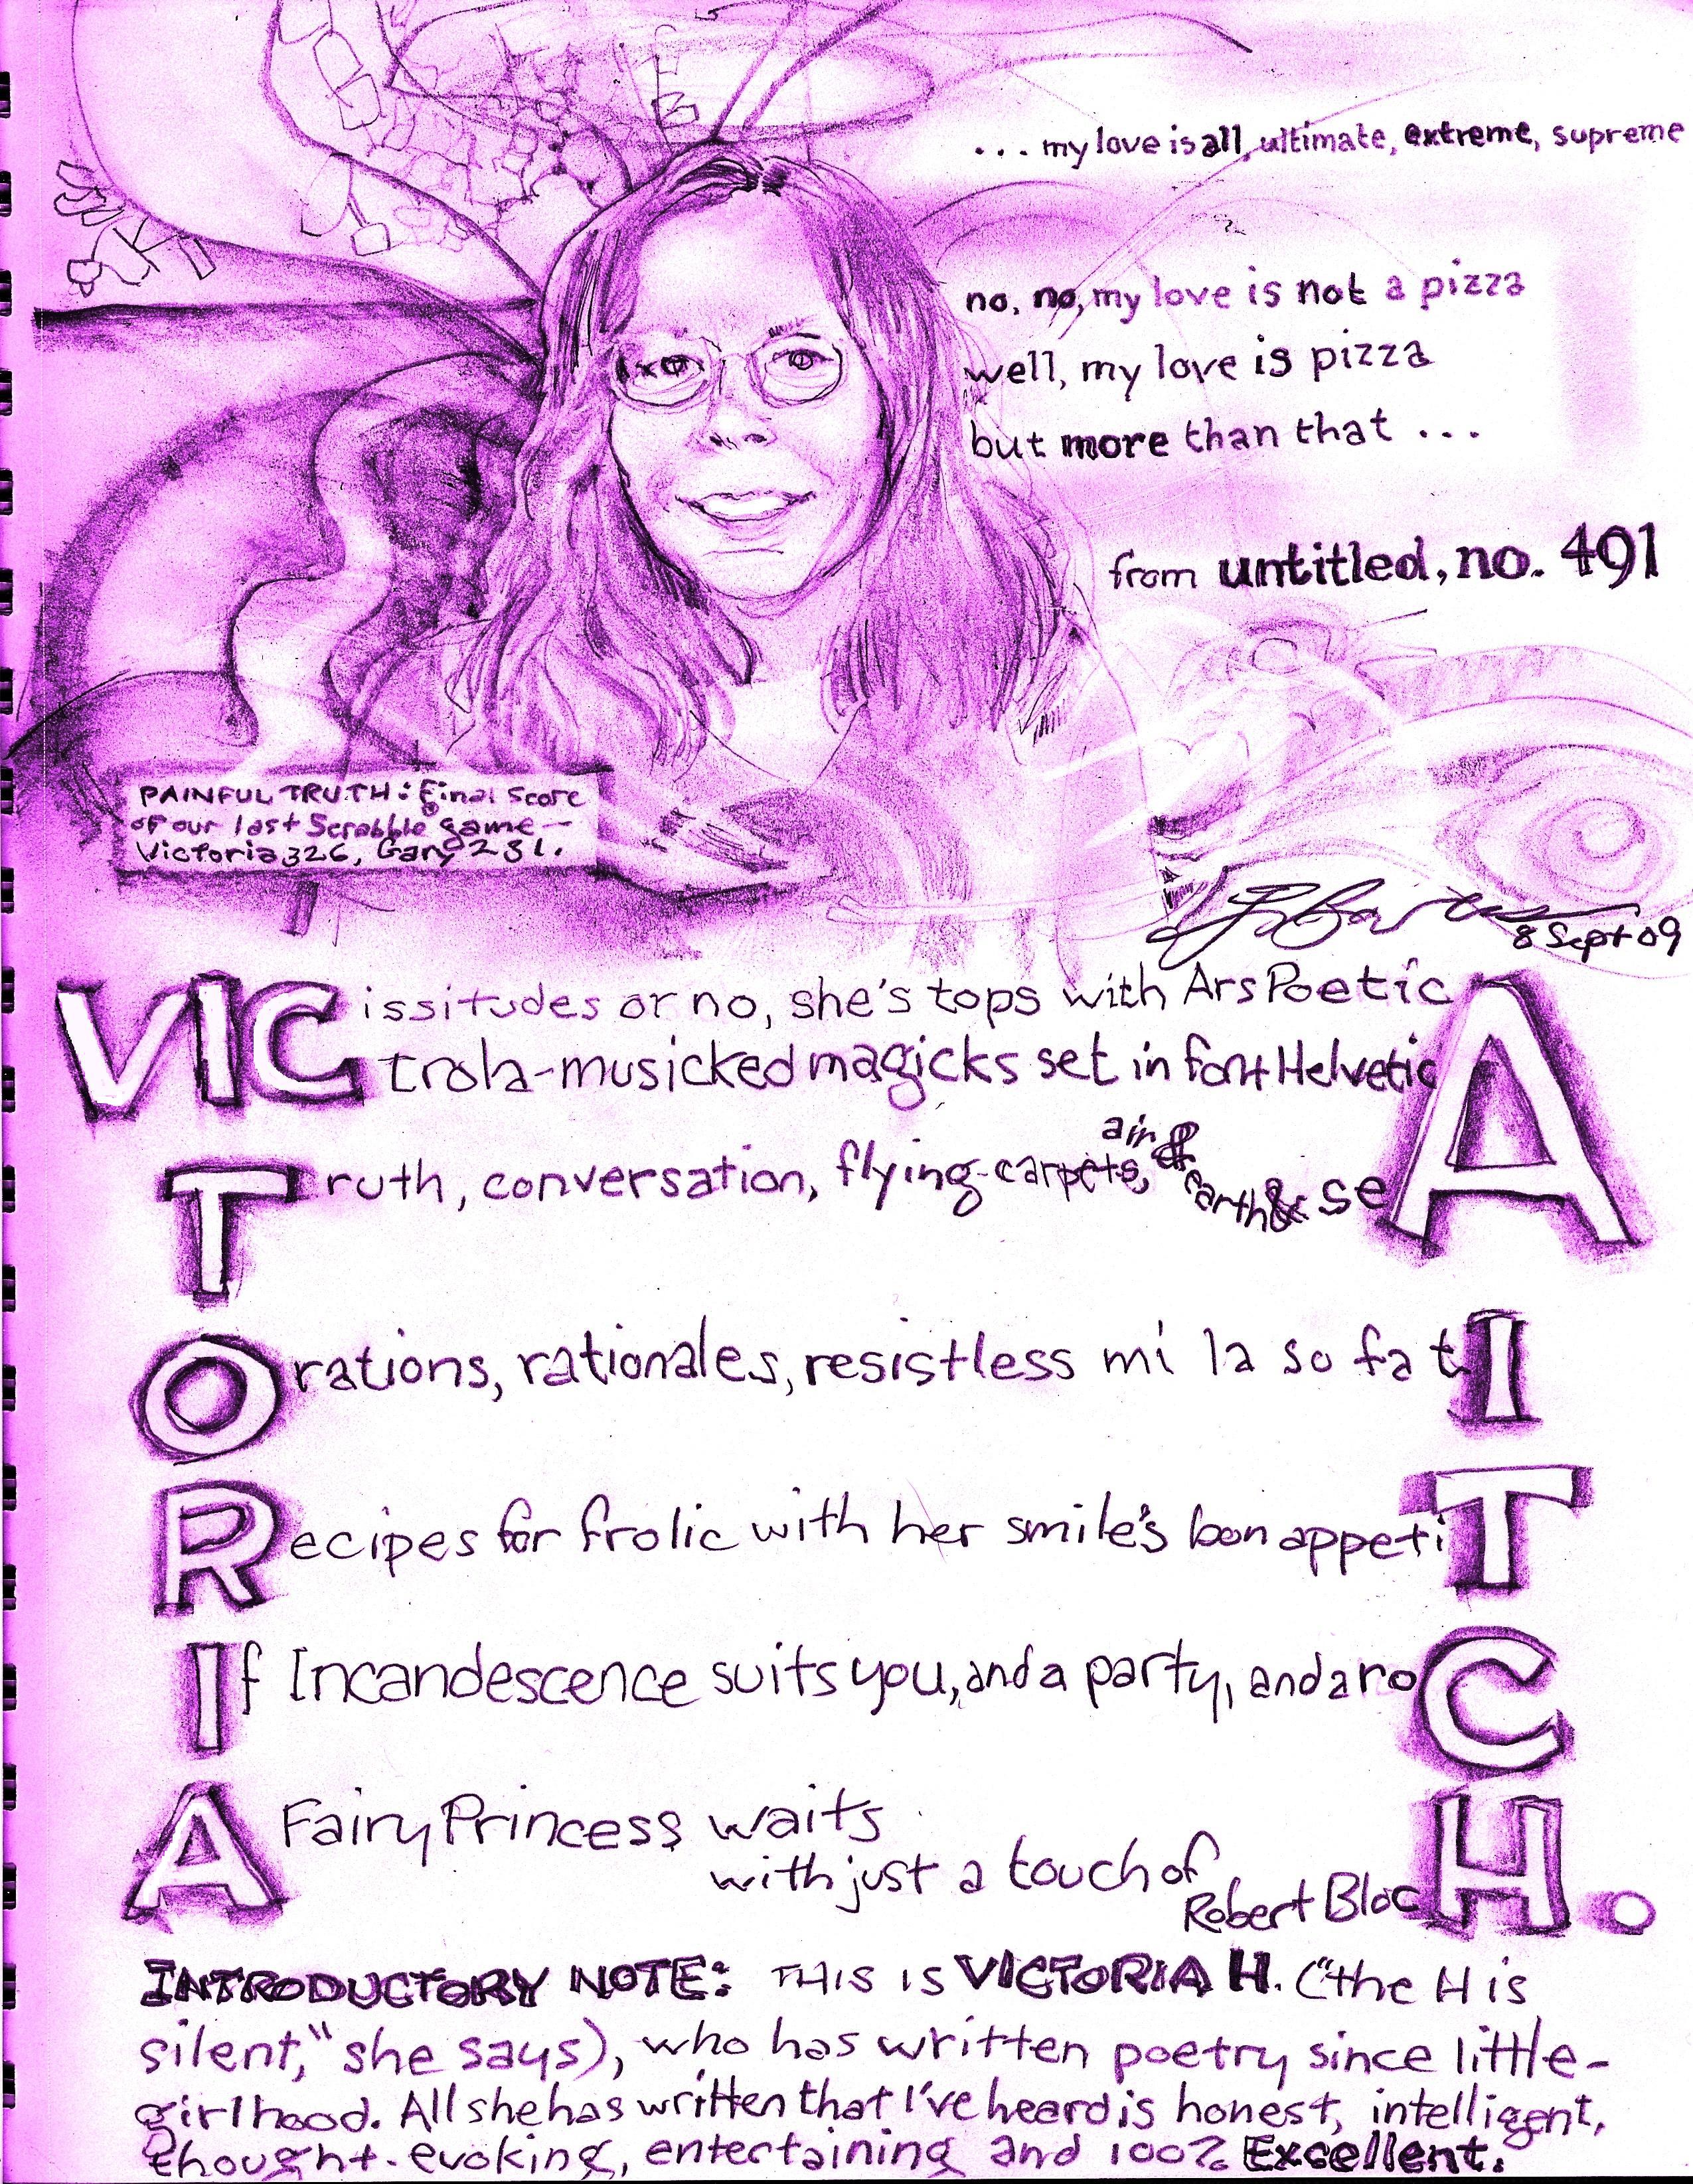 ... my love is all, ultimate, extreme, supreme
no, no, my love is not a pizza
well, my love is pizza
but more than that ...
from untitled, no. 491
PAINFUL TRUTH: Final Score
of our last Scrabble game—
Victoria 326, Gary 231.
8 Sept 09
VICissitudes or no, she's tops with Ars Poetic
trola-musicked magicks set in font HelveticA
Truth, conversation, flying-carpets, air & earth & seA
Orations, rationales, resistless mi la so fa tI
Recipes for frolic with her smile's bon appetiT
If Incandescence suits you, and a party, and a roC
A Fairy Princess waits
with just a touch of
Robert BlocH.
INTRODUCTORY NOTE: THIS IS VICTORIA H. ("the H is
silent," she says), who has written poetry since little-
girlhood. All she has written that I've heard is honest, intelligent,
thought-evoking, entertaining and 100% Excellent.